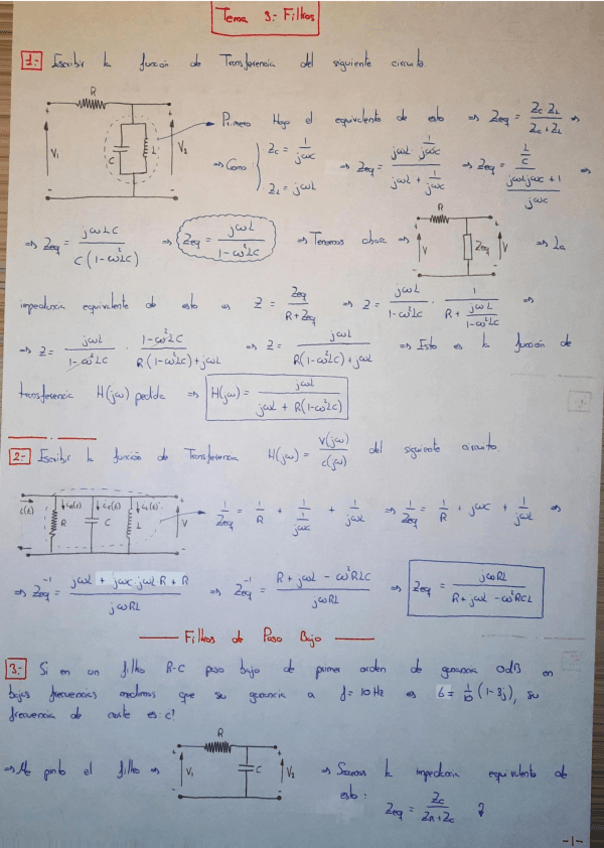 Tema 3.- Filtros
1.- Escribir la función de Transferencia del siguiente circuito.
R
V₁ C L V₂
Primero Hago el equivalente de esto ⇒ Zeq = Zc·ZL / (Zc + ZL) ⇒
⇒ Como { Zc = 1/jωC ; ZL = jωL ⇒ Zeq = (jωL · 1/jωC) / (jωL + 1/jωC) ⇒ Zeq = (L/C) / ((jωL jωC + 1)/jωC) ⇒
⇒ Zeq = jωLC / C(1-ω²LC) ⇒ Zeq = jωL / (1-ω²LC) ⇒ Tenemos ahora ⇒ R V Zeq V ⇒ La
impedancia equivalente de esto es Z = Zeq / (R+Zeq) ⇒ Z = jωL / (1-ω²LC) · 1 / (R + jωL/(1-ω²LC)) ⇒
⇒ Z = jωL / (1-ω²LC) · (1-ω²LC) / (R(1-ω²LC)+jωL) ⇒ Z = jωL / (R(1-ω²LC)+jωL) ⇒ Esto es la función de
transferencia H(jω) pedida ⇒ H(jω) = jωL / (jωL + R(1-ω²LC))
2.- Escribir la función de Transferencia H(jω) = V(jω) / c(jω) del siguiente circuito
R C L V
⇒ 1/Zeq = 1/R + 1/(1/jωC) + 1/jωL ⇒ 1/Zeq = 1/R + jωC + 1/jωL ⇒
⇒ Zeq⁻¹ = (jωL + jωC·jωL R + R) / jωRL ⇒ Zeq⁻¹ = (R + jωL - ω²RLC) / jωRL ⇒ Zeq = jωRL / (R + jωL - ω²RCL)
Filtros de Paso Bajo
3.- Si en un filtro R-C paso bajo de primer orden de ganancia 0dB en
bajas frecuencias medimos que su ganancia a f=10Hz es G = 1/10 (1-3j), su
frecuencia de corte es: c?
⇒ Me pinto el filtro ⇒ R V₁ C V₂ ⇒ Sacamos la impedancia equivalente de
esto:
Zeq = Zc / (ZR + Zc)
-1-